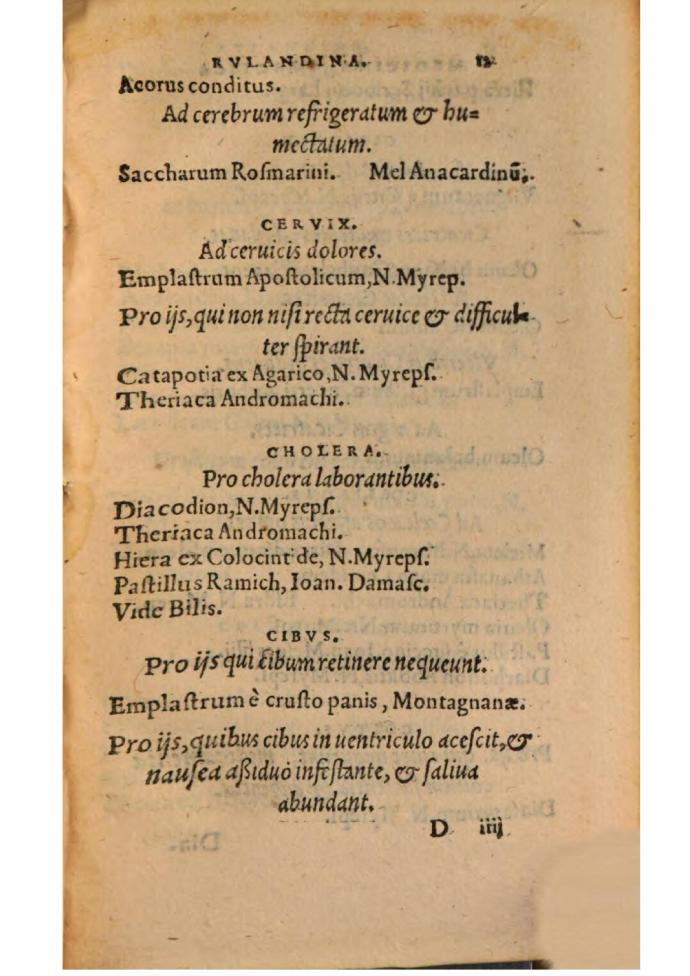 RVLANDINA.
Acorus conditus.
Ad cerebrum refrigeratum & hu=
mectatum.
Saccharum Roſmarini. Mel Anacardinũ.
CERVIX.
Ad ceruicis dolores.
Emplaſtrum Apoſtolicum, N. Myrep.
Pro ijs, qui non niſi recta ceruice & difficul-
ter ſpirant.
Catapotia ex Agarico, N. Myrepſ.
Theriaca Andromachi.
CHOLERA.
Pro cholera laborantibus.
Diacodion, N. Myrepſ.
Theriaca Andromachi.
Hiera ex Colocint de, N. Myrepſ.
Paſtillus Ramich, Ioan. Damaſc.
Vide Bilis.
CIBVS.
Pro ijs qui cibum retinere nequeunt.
Emplaſtrum è cruſto panis, Montagnanæ.
Pro ijs, quibus cibus in uentriculo aceſcit, &
nauſea aßiduò infeſtante, & ſaliua
abundant.
D iiij